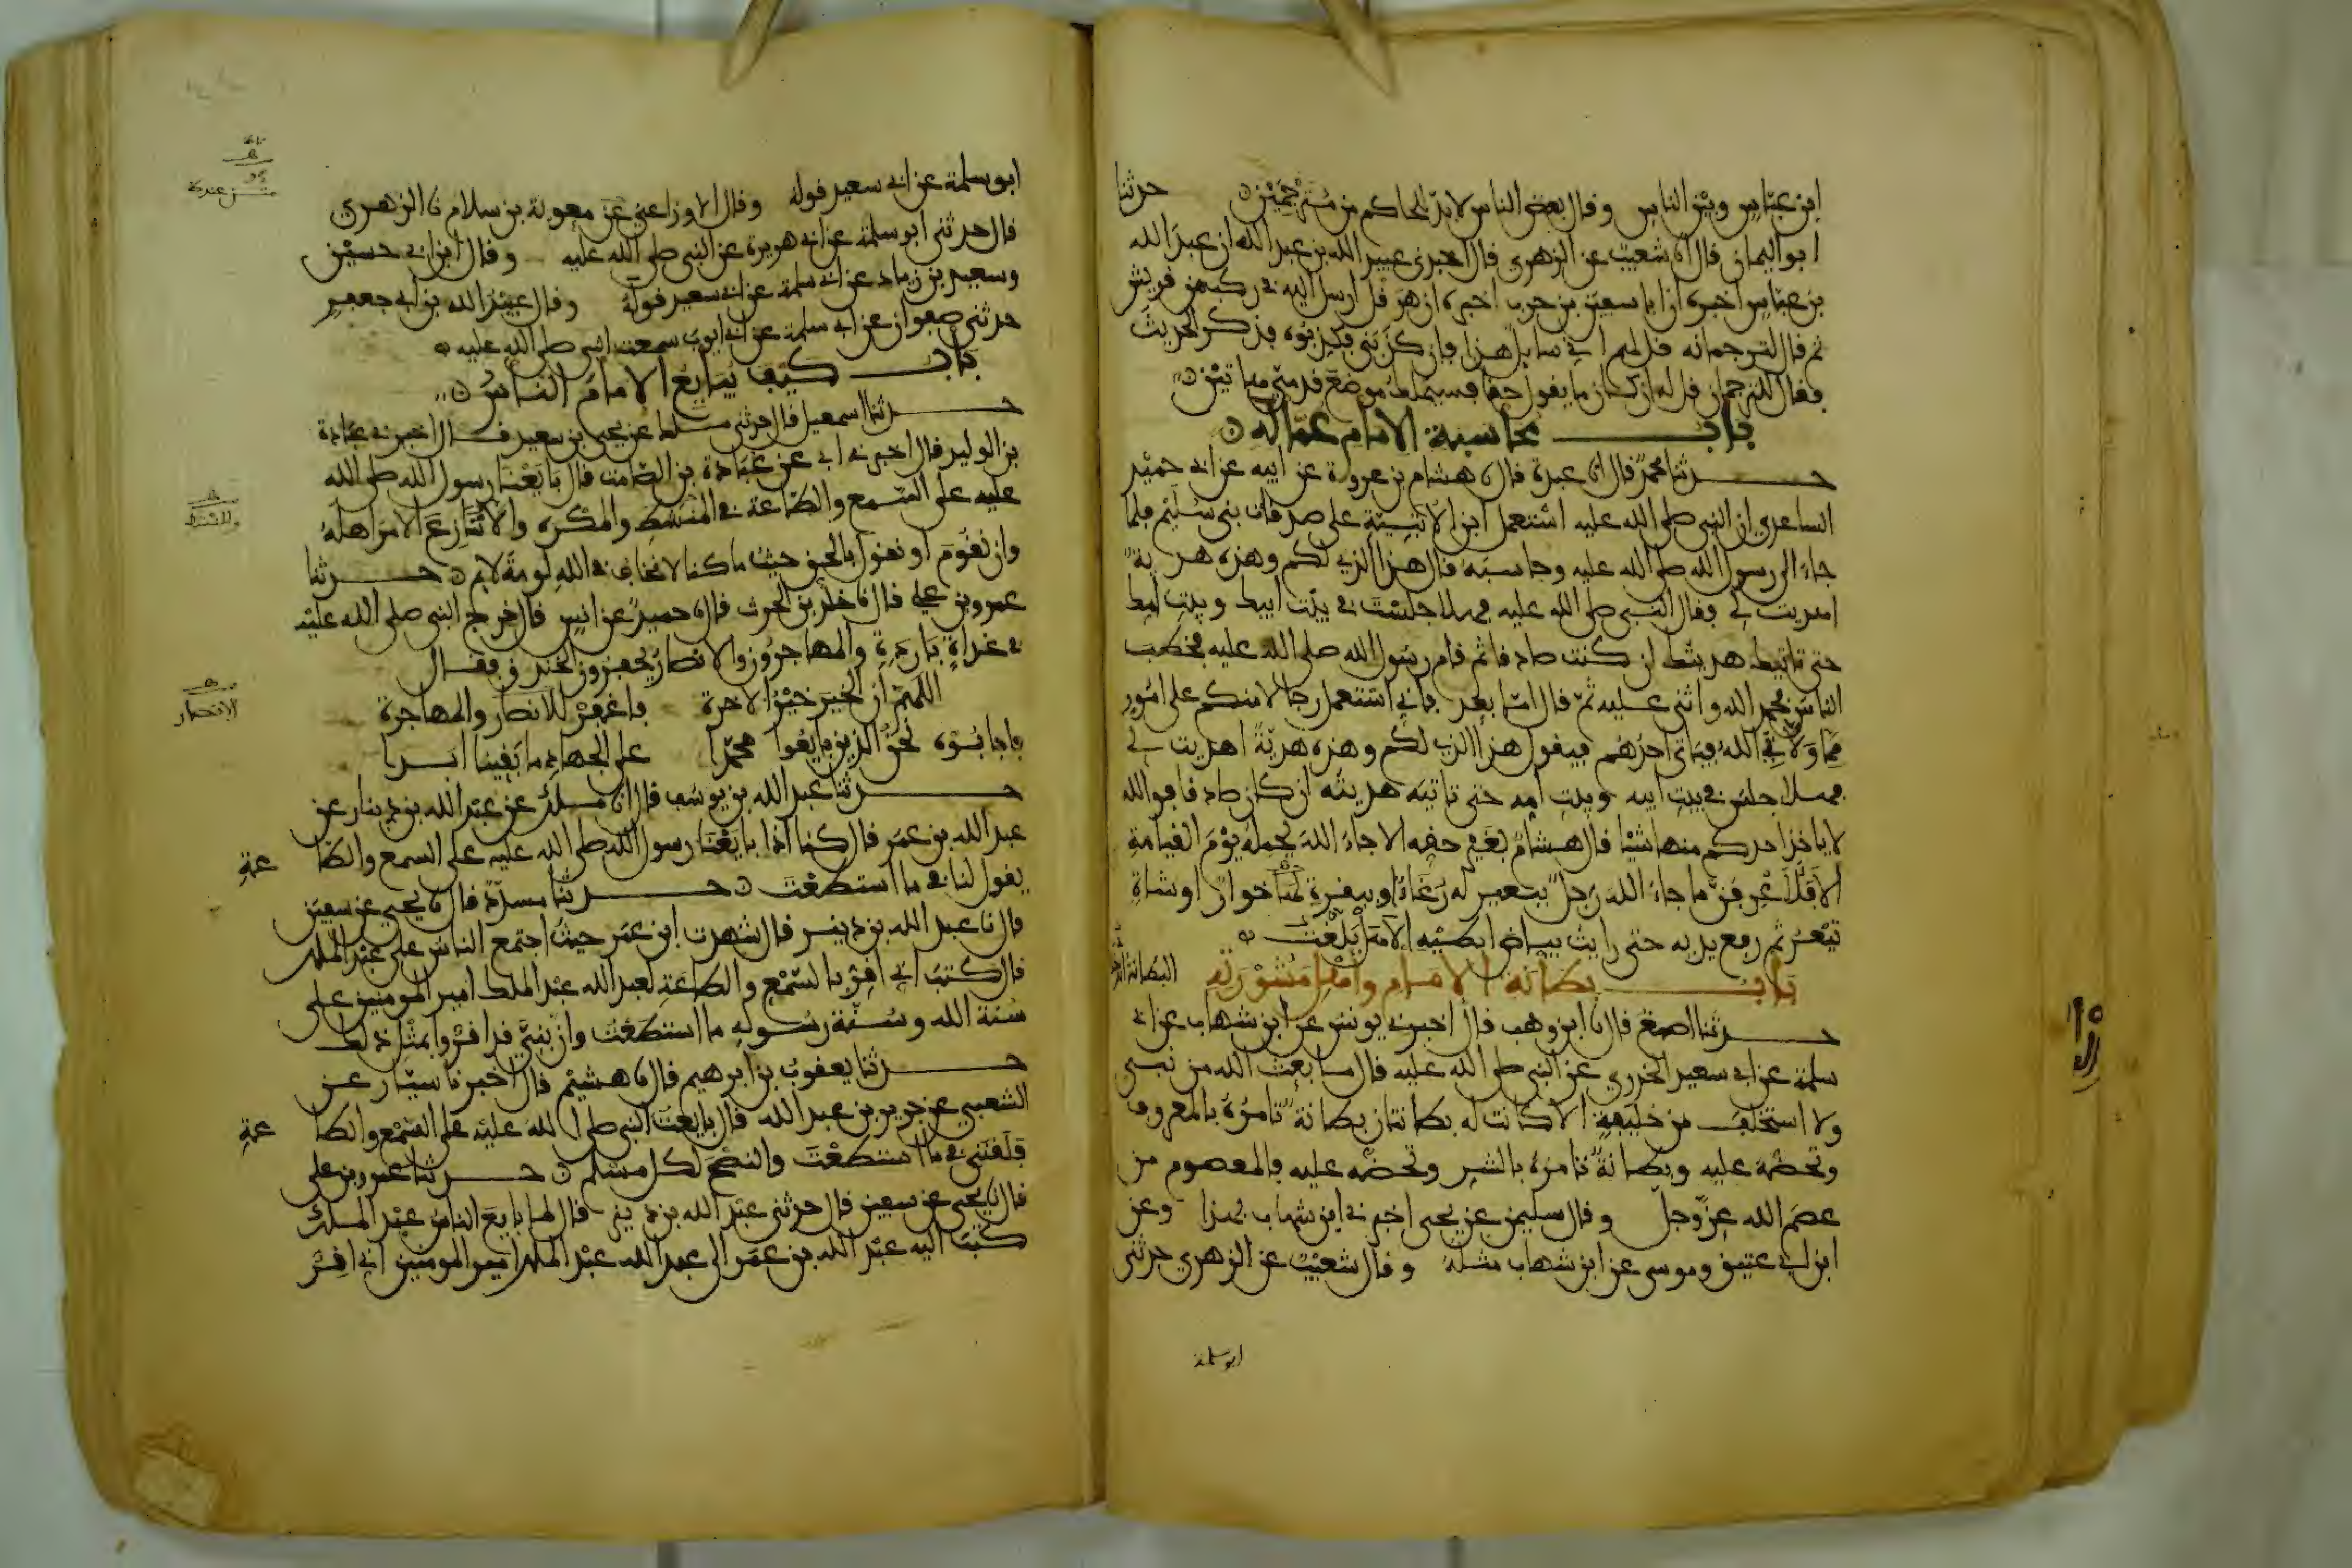 ابن عباس وبين الناس وقال بعض الناس لا بد للحاكم من مترجمين حدثنا
ابو اليمان قال انا شعيب عن الزهري قال اخبرني عبيد الله بن عبد الله ان عبد الله
بن عباس اخبره ان ابا سفين بن حرب اخبره ان هرقل ارسل اليه في ركب من قريش
ثم قال لترجمانه قل لهم اني سايل هذا فان كذبني فكذبوه فذكر الحديث
فقال للترجمان قل له ان كان ما يقول حقا فسيملك موضع قدمي هاتين
باب محاسبة الامام عماله
حدثنا محمد قال انا عبدة قال نا هشام بن عروة عن ابيه عن ابي حميد
الساعدي ان النبي صلى الله عليه استعمل ابن الاتبية على صدقات بني سليم فلما
جاء الى رسول الله صلى الله عليه وحاسبه قال هذا الذي لكم وهذه هدية
اهديت لي فقال النبي صلى الله عليه فهلا جلست في بيت ابيك وبيت امك
حتى تاتيك هديتك ان كنت صادقا ثم قام رسول الله صلى الله عليه فخطب
الناس فحمد الله واثنى عليه ثم قال اما بعد فاني استعمل رجالا منكم على امور
مما ولاني الله فياتي احدهم فيقول هذا الذي لكم وهذه هدية اهديت لي
فهلا جلس في بيت ابيه وبيت امه حتى تاتيه هديته ان كان صادقا فوالله
لا ياخذ احدكم منها شيئا قال هشام بغير حقه الا جاء الله يحمله يوم القيامة
الا فلا اعرفن ما جاء الله رجل ببعير له رغاء او ببقرة لها خوار او شاة
تيعر ثم رفع يديه حتى رايت بياض ابطيه الا هل بلغت
باب بطانة الامام واهل مشورته البطانة
حدثنا اصبغ قال انا ابن وهب قال اخبرني يونس عن ابن شهاب عن ابي
سلمة عن ابي سعيد الخدري عن النبي صلى الله عليه قال ما بعث الله من نبي
ولا استخلف من خليفة الا كانت له بطانتان بطانة تامره بالمعروف
وتحضه عليه وبطانة تامره بالشر وتحضه عليه فالمعصوم من
عصم الله عز وجل وقال سليمن عن يحيى اخبرني ابن شهاب بهذا وعن
ابن ابي عتيق وموسى عن ابن شهاب مثله وقال شعيب عن الزهري حدثني
ابو سلمة
ابو سلمة عن ابي سعيد قوله وقال الاوزاعي عن معوية بن سلام نا الزهري
قال حدثني ابو سلمة عن ابي هريرة عن النبي صلى الله عليه وقال ابن ابي حسين
وسعيد بن زياد عن ابي سلمة عن ابي سعيد قوله وقال عبيد الله بن ابي جعفر
حدثني صفوان عن ابي سلمة عن ابي ايوب سمعت النبي صلى الله عليه
باب كيف يبايع الامام الناس
حدثنا اسمعيل قال حدثني ملك عن يحيى بن سعيد قال اخبرني عبادة
بن الوليد قال اخبرني ابي عن عبادة بن الصامت قال بايعنا رسول الله صلى الله
عليه على السمع والطاعة في المنشط والمكره والا ننازع الامر اهله
وان نقوم او نقول بالحق حيث ما كنا لا نخاف في الله لومة لايم حدثنا
عمرو بن علي قال نا خلد بن الحرث قال نا حميد عن انس قال خرج النبي صلى الله عليه
في غداة باردة والمهاجرون والانصار يحفرون الخندق فقال
اللهم ان الخير خير الاخرة فاغفر للانصار والمهاجرة
فاجابوه نحن الذين بايعوا محمدا على الجهاد ما بقينا ابدا
حدثنا عبد الله بن يوسف قال انا ملك عن عبد الله بن دينار عن
عبد الله بن عمر قال كنا اذا بايعنا رسول الله صلى الله عليه على السمع والطاعة
يقول لنا في ما استطعت حدثنا مسدد قال نا يحيى عن سفين
قال نا عبد الله بن دينر قال شهدت ابن عمر حيث اجتمع الناس على عبد الملك
قال كتب اني اقر بالسمع والطاعة لعبد الله عبد الملك امير المومنين على
سنة الله وسنة رسوله ما استطعت وان بني قد اقروا بمثل ذلك
حدثنا يعقوب بن ابرهيم قال نا هشيم قال اخبرنا سيار عن
الشعبي عن جرير بن عبد الله قال بايعت النبي صلى الله عليه على السمع والطاعة
فلقنني في ما استطعت والنصح لكل مسلم حدثنا عمرو بن علي
قال نا يحيى عن سفين قال حدثني عبد الله بن دينر قال لما بايع الناس عبد الملك
كتب اليه عبد الله بن عمر الى عبد الله عبد الملك امير المومنين اني اقر
الانصار